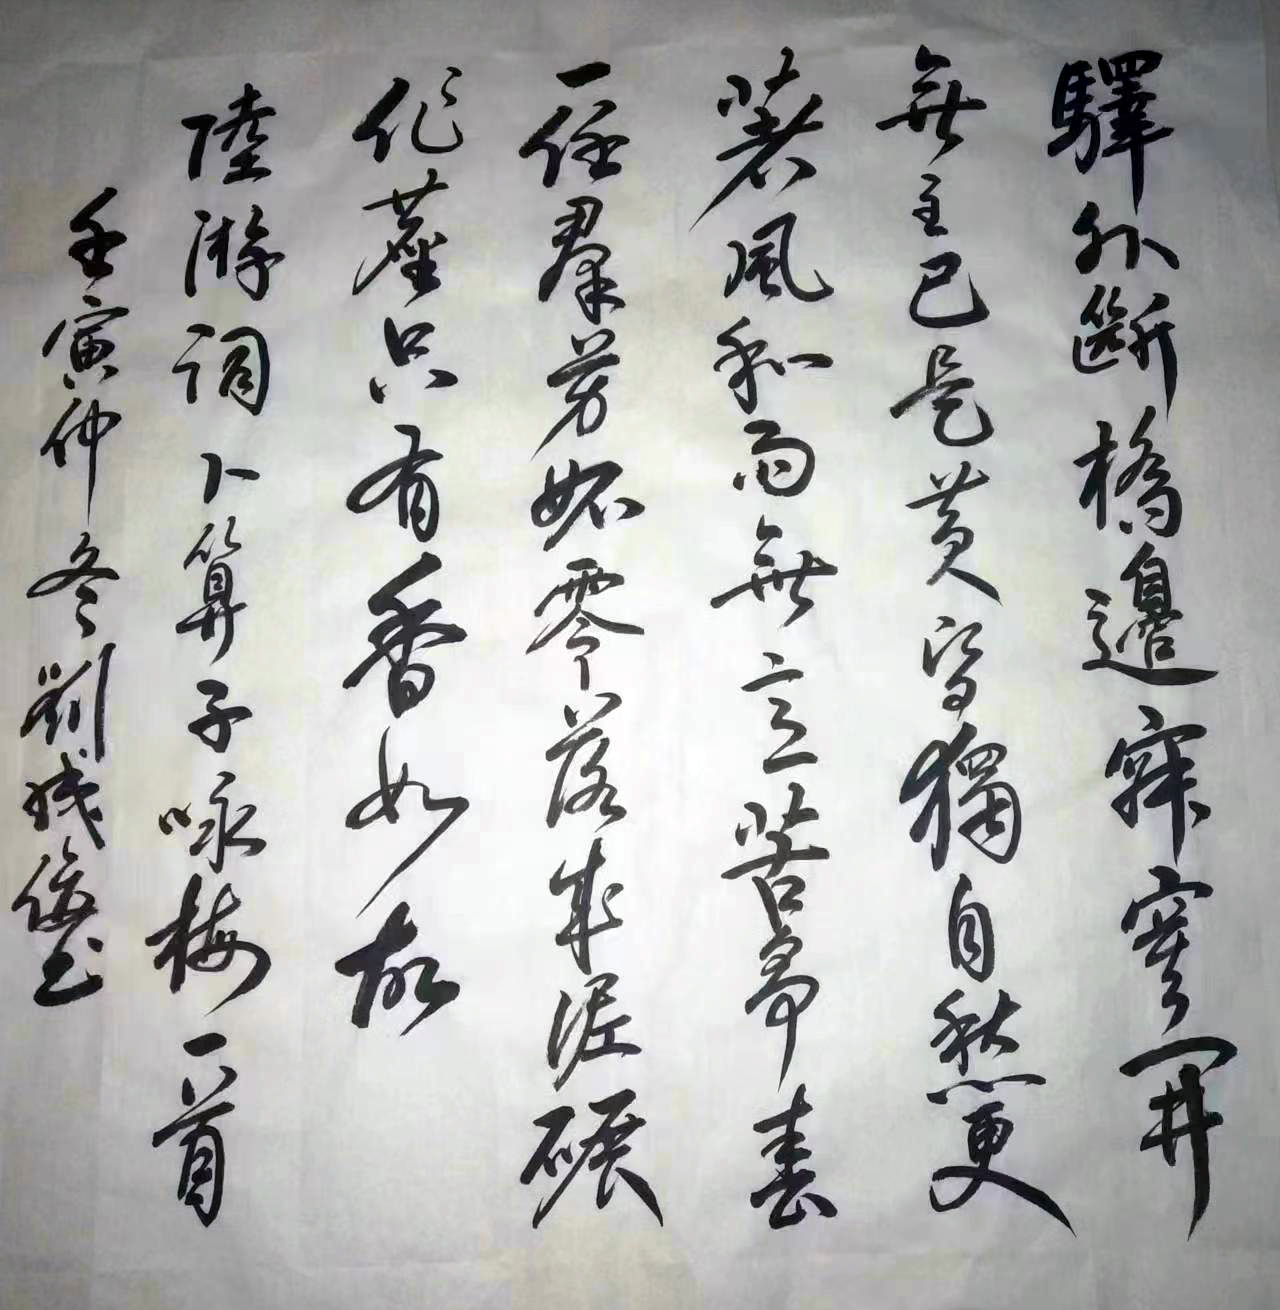 驛外斷橋邊寂寞開
無主已是黃昏獨自愁更
著風和雨無意苦爭春
一任羣芳妬零落成泥碾
作塵只有香如故
陸游詞卜算子咏梅一首
壬寅仲冬劉书